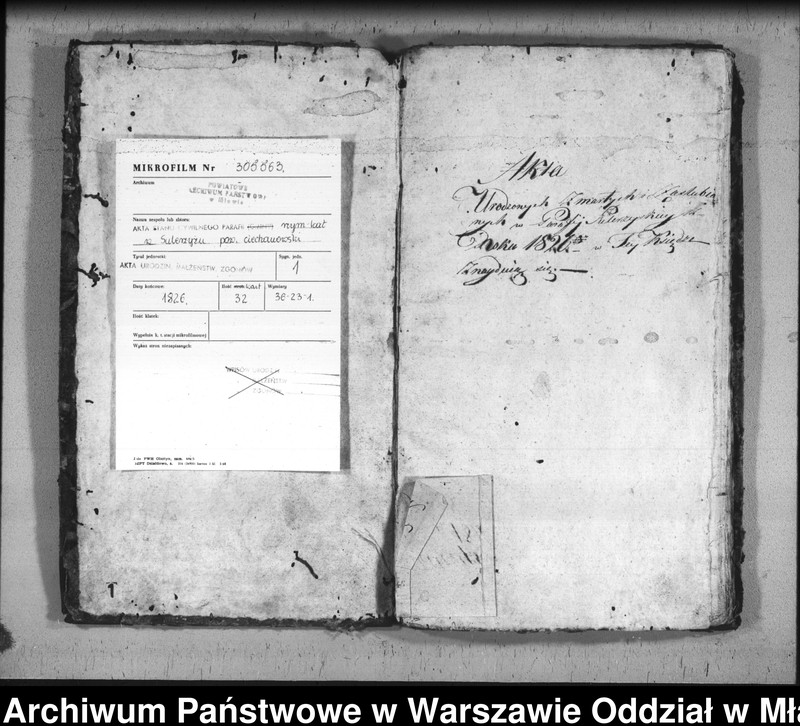 MIKROFILM Nr 308863.
Archiwum
POWIATOWE
ARCHIWUM PAŃSTWOWE
w Mławie
Nazwa zespołu lub zbioru
AKTA STANU CYWILNEGO PARAFII rzym. kat
w Sulerzyżu pow. ciechanowski
Tytuł jednostki
Sygn. jedn.
AKTA URODZIN, MAŁŻEŃSTW, ZGONÓW
1
Daty końcowe
Ilość kart
Wymiary
1826.
32
36-23-1.
Ilość klatek
Wypełnia k. t. stacji mikrofilmowej
Wykaz stron niezapisanych
1
Akta
Urodzonych Zmarłych i Zaślubio
nych w Parafii Sulerzyskiey
Od roku 1826 w Tey Księdze
Znayduią się.
Archiwum Państwowe w Warszawie Oddział w Mła